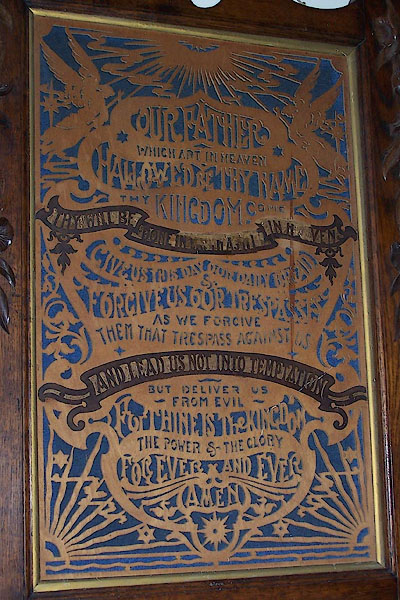 OUR FATHER
WHICH ART IN HEAVEN
HALLOWED BE THY NAME
THY KINGDOM COME
THY WILL BE DONE IN EARTH AS IT IS IN HEAVEN
GIVE US THIS DAY OUR DAILY BREAD
&
FORGIVE US OUR TRESPASSES
AS WE FORGIVE
THEM THAT TRESPASS AGAINST US
AND LEAD US NOT INTO TEMPTATION
BUT DELIVER US
FROM EVIL
FOR THINE IS THE KINGDOM
THE POWER & THE GLORY
FOR EVER AND EVER
AMEN